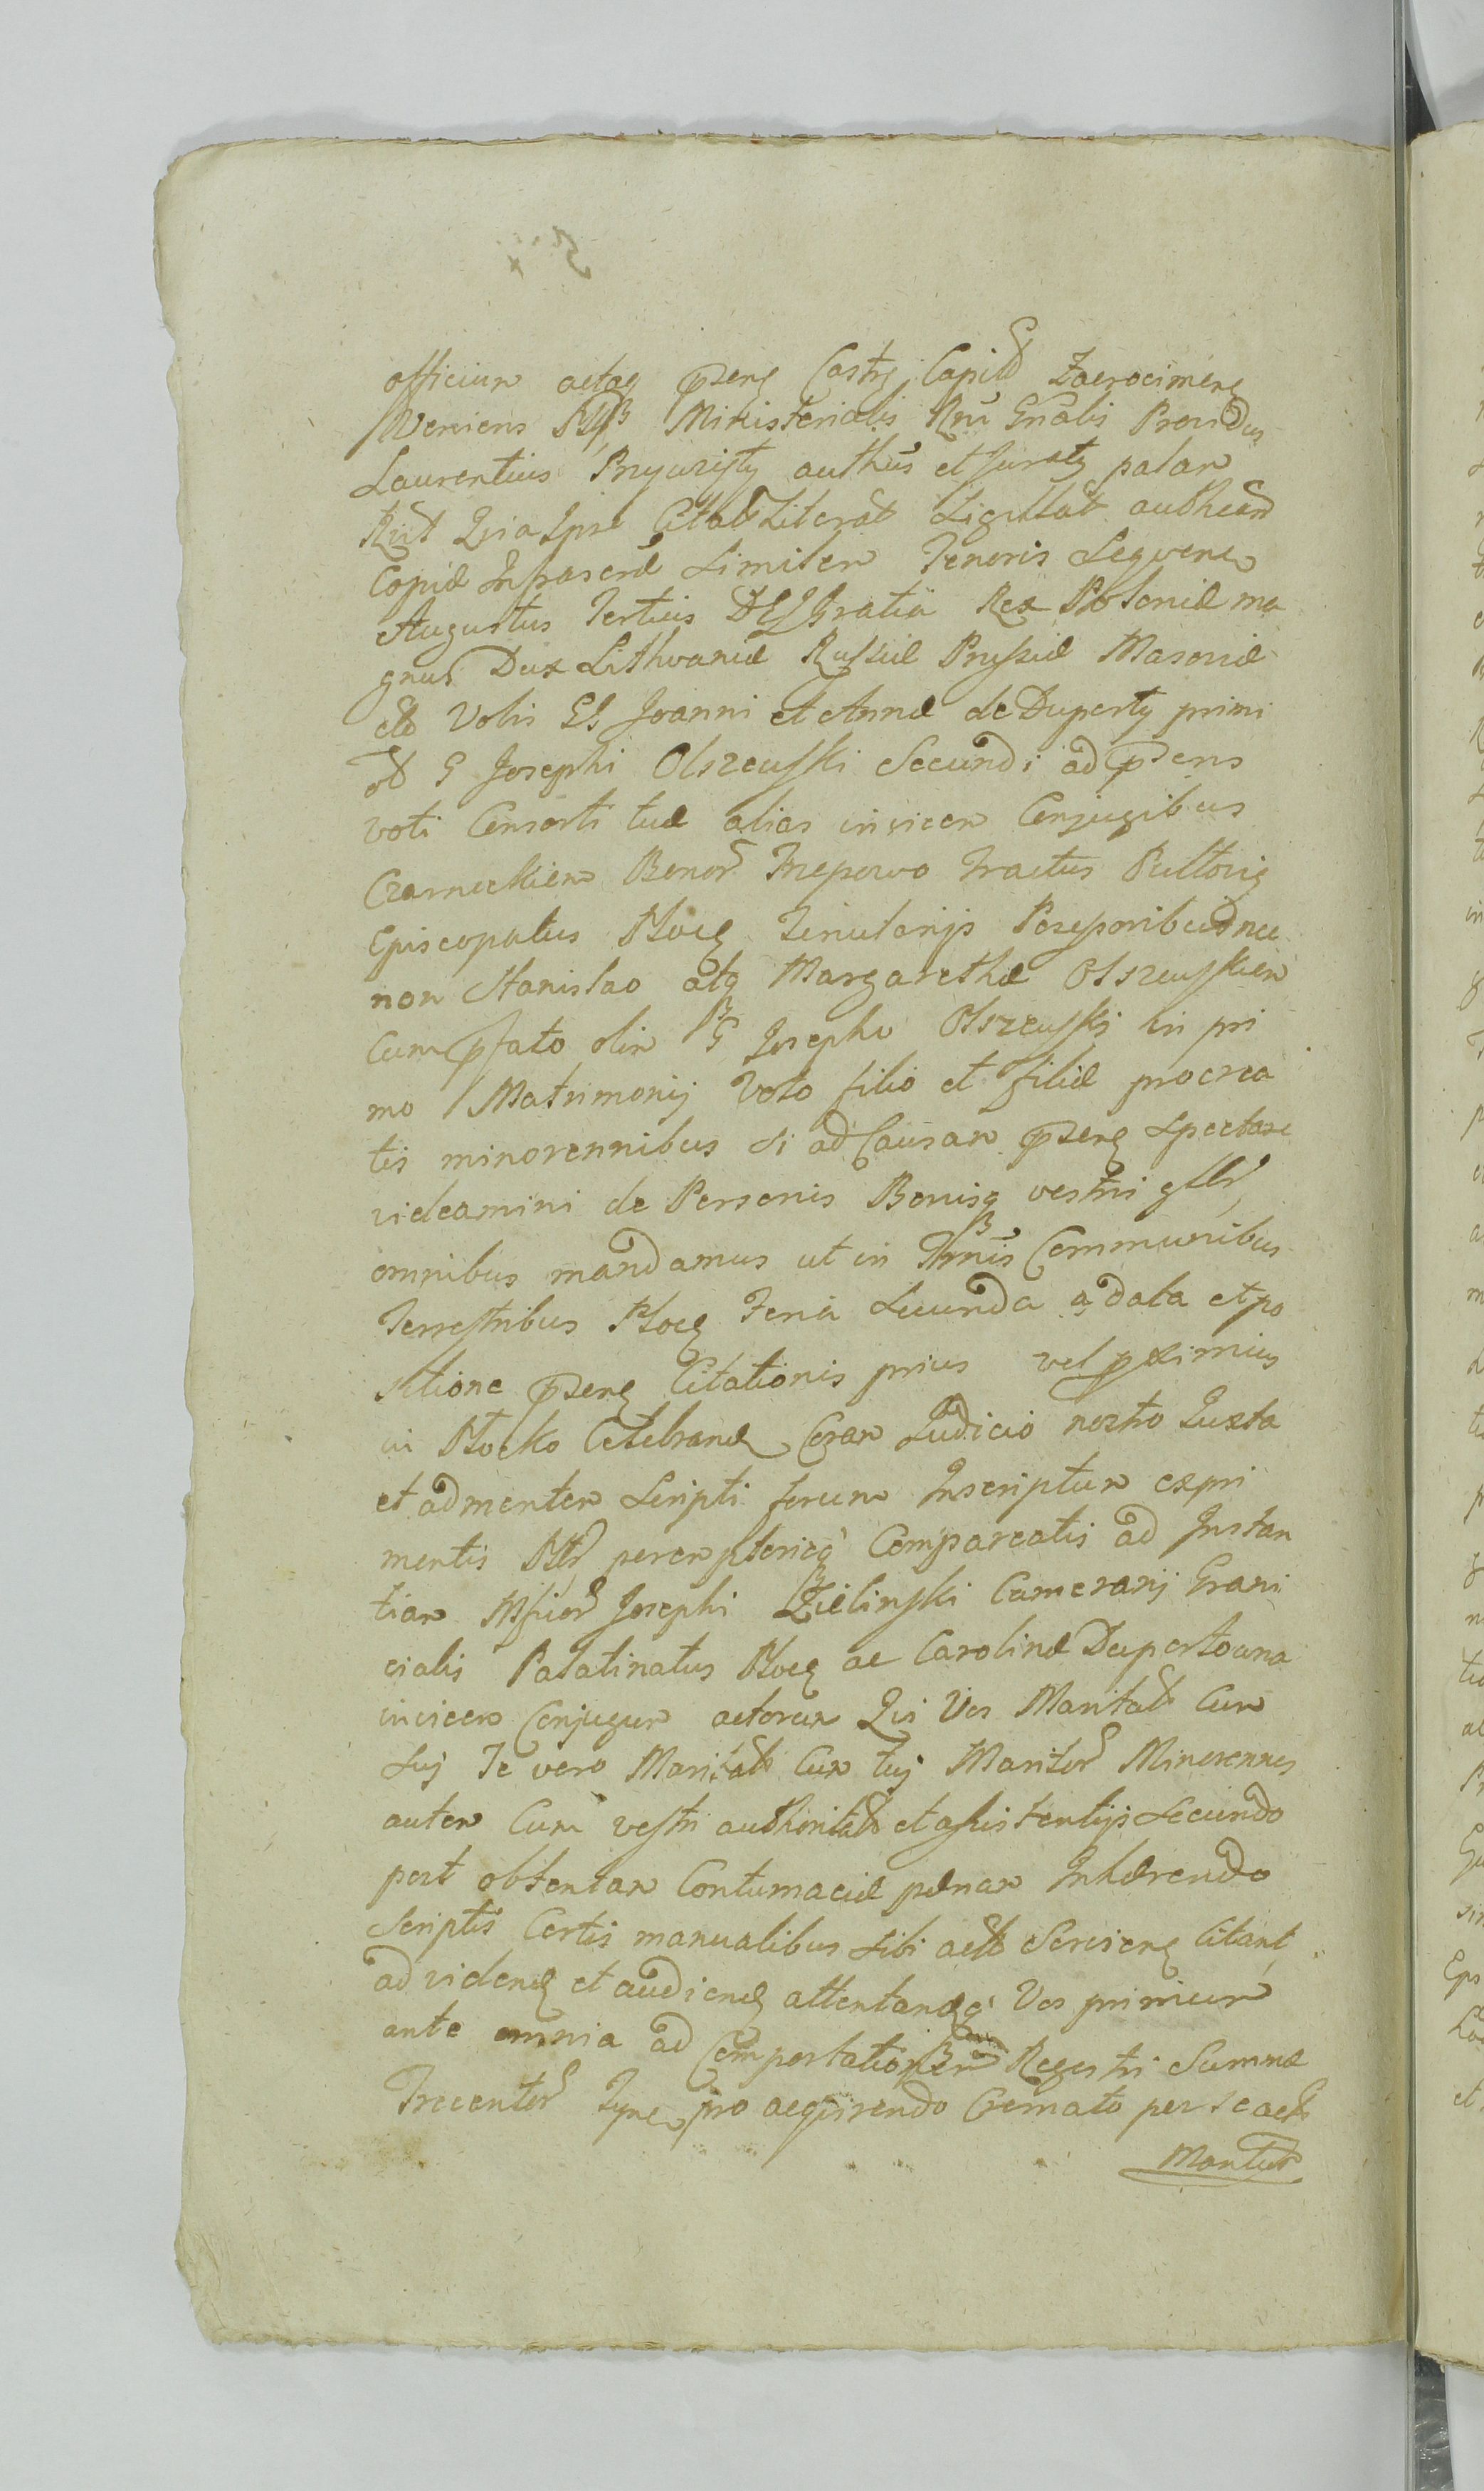 officium actaq pserę Castrę Capitł Zacrocimerę
Veniens Ministerialis Rni Gnalis Providus
Laurentius Przywisty authūs et Juratą palam
Rūt Qvia Ipse Citaĕ Literāt Sigillāt authēan
Copiæ Infrascræ Similem Tenoris Seqvens
Augustus Tertius DEI Gratia Rex Poloniæ ma
gnus Dux Lithvaniæ Russiæ Prussiæ Masoviæ
etc Vobis GG Joanni et Annæ de Duperty primi
et G Josephi Olszewski Secundi ad psens
voti Consorti tuæ alias invicem Conjugibus
Czarneckiem Bonor Trepowo Tractus Pultovię
Episcopatus Plocę Tenutarijs Possessoribus nec
non Stanislao atq Margarethæ Olszewskiem
Cum pfato olim G Josepho Olszewskj in pri
mo Matrimonij Voto filio et filiæ procrea
tis minorennibus Si ad Causam pserę Spectare
videamini de Personis Bonisq vestris gllr
omnibus mandamus ut in Trmis Communibus
Terrestribus Plocę Feria Secunda a data et po
sitione pserę Citationis prius vel pximius
in Plocko Celebranę Coram Judicio nostro Juxta
et ad mentem Scripti forum Inscriptum expri
mentis peremptorieq Compareatis ad Instan
tiam Mficor Josephi Zielinski Camerarij Grani
cialis Palatinatus Plocę ac Carolinæ Dupertowna
invicem Conjugum actorum Qui Vos Maritał Cum
Suj Te vero Maritał Cum tuj Maritor Minorennes
autem Cum vestri authoritał et assistentijs Secundo
post obtentam Contumaciæ pænam Inhærendo
Scriptis Certis manualibus Sibi actł Servienę Citant
ad videnę et audienę attentandęq Vos primum
ante omnia ad Comportationem Regestri Summæ
Trecentor Tynf pro acqirendo Cremato per Se actł
Mantuł